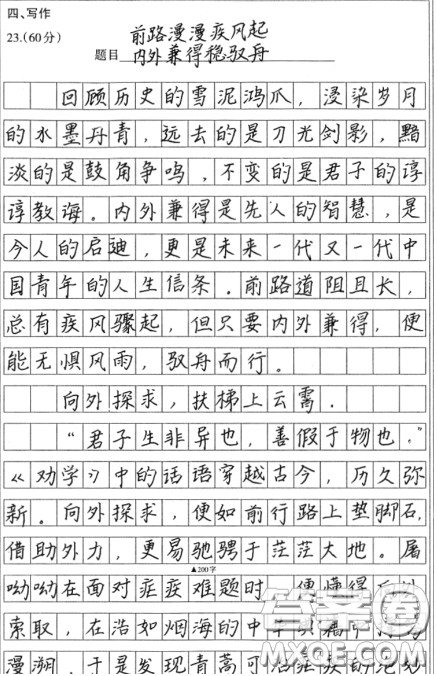 四、写作
23.(60分)
前路漫漫疾风起
题目 内外兼得稳驭舟
回顾历史的雪泥鸿爪，浸染岁月
的水墨丹青，远去的是刀光剑影，黯
淡的是鼓角争鸣，不变的是君子的谆
谆教诲。内外兼得是先人的智慧，是
今人的启迪，更是未来一代又一代中
国青年的人生信条。前路道阻且长，
总有疾风骤起，但只要内外兼得，便
能无惧风雨，驭舟而行。
向外探求，扶梯上云霄.
“君子生非异也，善假于物也。”
《劝学》中的话语穿越古今，历久弥
新。向外探求，便如前行路上垫脚石，
借助外力，更易驰骋于茫茫大地。屠
▲200字
呦呦在面对症疾难题时，便懂得
索取，在浩如烟海的中
漫溯，于是发现青蒿可治
答案圈
MXQE.COM